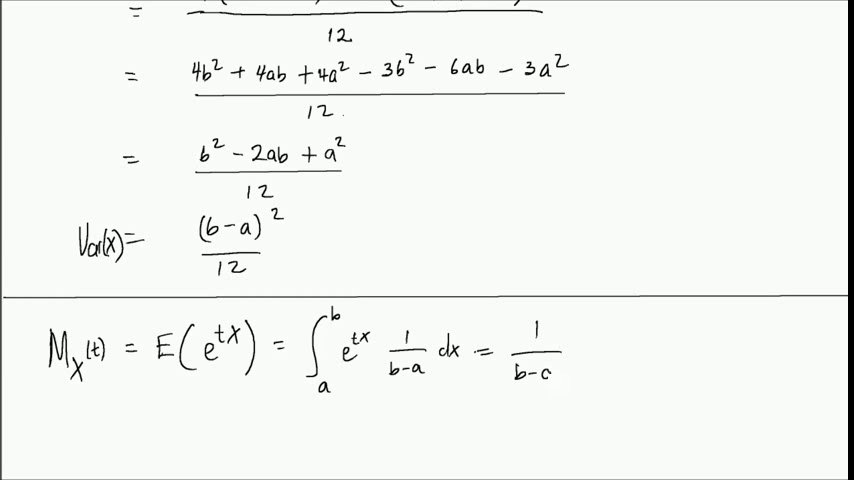 =
12
= 4b² + 4ab + 4a² − 3b² − 6ab − 3a²
12
= b² − 2ab + a²
12
Var(x) = (b−a)²
12
M_X(t) = E(e^{tX}) = ∫_a^b e^{tx} 1/(b−a) dx = 1/(b−c